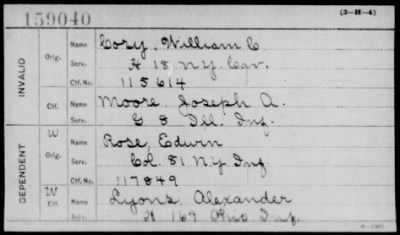 159040
(3-H-4)
INVALID
Orig.
Name Cory, William C
Serv. H 18 N.Y. Cav.
Ctf. No. 115614
Ctf.
Name Moore, Joseph A.
Serv. G 8 Ill. Inf.
DEPENDENT
W
Orig.
Name Rose, Edwin
Serv. Col. 81 N.Y. Inf.
Ctf. No. 117849
W
Ctf.
Name Lyons, Alexander
Serv. H 169 Ohio Inf.